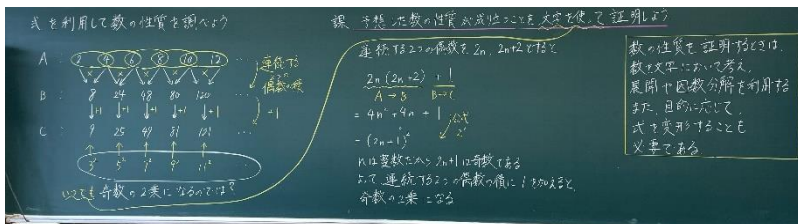 式を利用して数の性質を調べよう
A : 2 4 6 8 10 12 …
連続する
偶数の積
B : 8 24 48 80 120 …
+1 +1 +1 +1 +1
+1
C : 9 25 49 81 121 …
3² 5² 7² 9² 11²
いつでも 奇数の2乗になるのでは?
課 予想した数の性質が成り立つことを、文字を使って証明しよう
連続する2つの偶数を2n, 2n+2とすると
2n(2n+2) + 1
A→B B→C
= 4n² + 4n + 1
= (2n+1)²
公式
2'
nは整数だから2n+1は奇数である
よって、連続する2つの偶数の積に1を加えると、
奇数の2乗になる
数の性質を証明するときは、
数を文字において考え、
展開や因数分解を利用する
また、目的に応じて、
式を変形することも
必要である